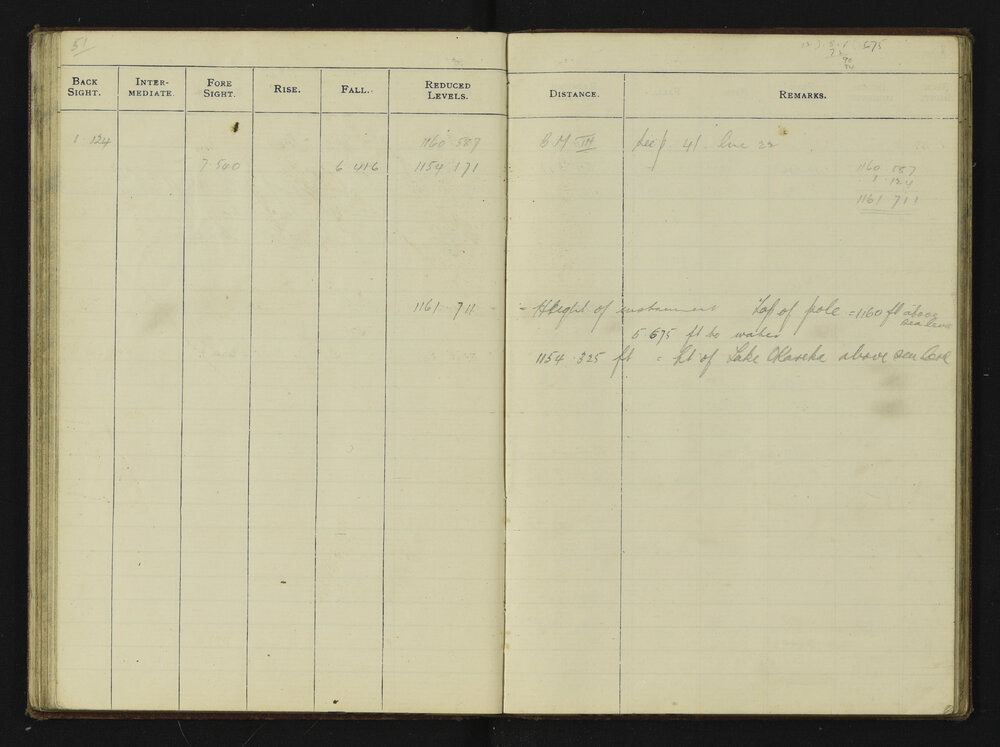 51
BACK SIGHT. INTER-MEDIATE. FORE SIGHT. RISE. FALL. REDUCED LEVELS. DISTANCE. REMARKS.
675
1.124 1160.587 B M III See p. 41. line 22
7.540 6.416 1154.171
1160.587
1.124
1161.711
1161.711 = Height of instrument Top of pole = 1160 ft above sea level
5.675 ft to water
1154.325 ft = ht of Lake Okareka above sea level